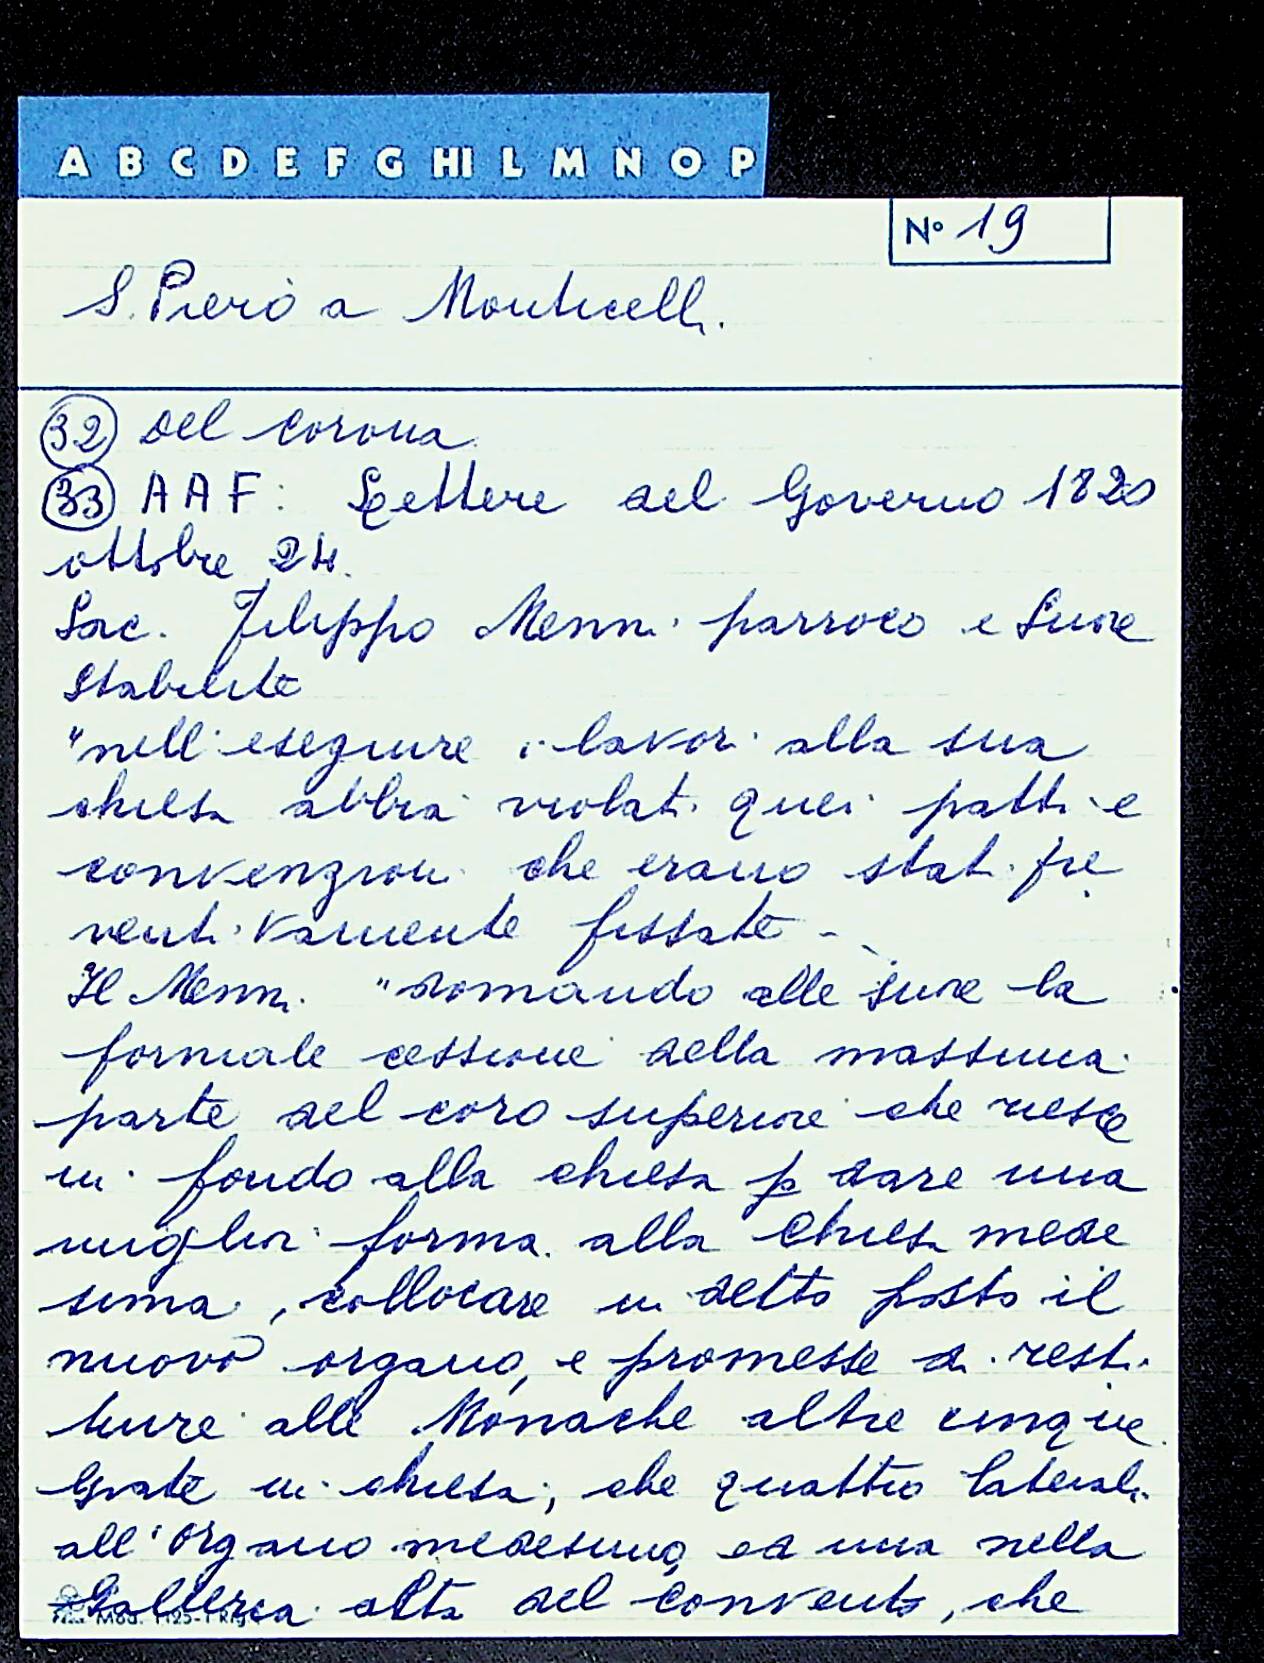 A B C D E F G HI L M N O P
N° 19
S. Piero a Monticelli.
32 del corona
33 A A F: Lettere del Governo 1820
ottobre 24.
Sac. Filippo Menni parroco e Suore
Stabilite
"nell'eseguire i lavori alla sua
chiesa abbia violati quei patti e
convenzioni che erano stati pre
ventivamente fissate -
Il Menni "domando alle suore la
formale cessione della massima
parte del coro superiore che riesce
in fondo alla chiesa p dare una
miglior forma alla Chiesa mede
sima, collocare in detto posto il
nuovo organo, e promesse di resti
tuire alle Monache altre cinque
Grate in chiesa, che quattro laterali
all'organo medesimo, ed una nella
Galleria alta del convento, che